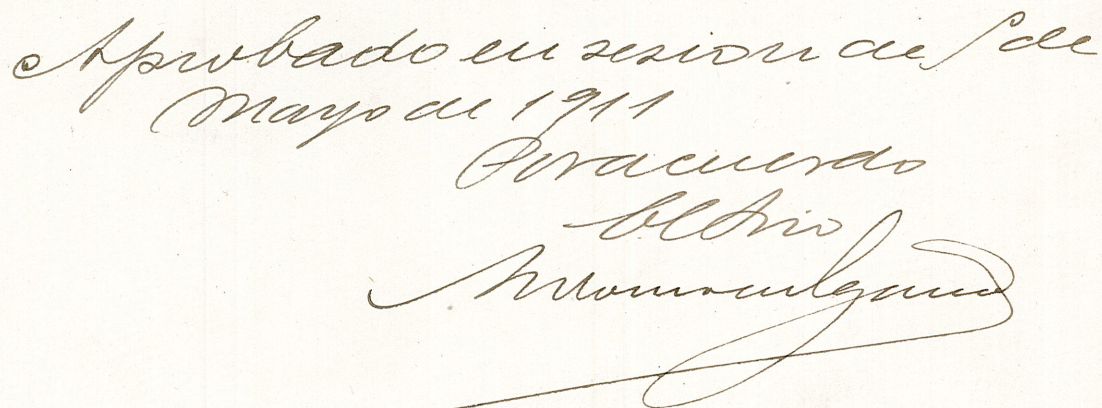 Aprobado en sesion de de
Mayo de 1911
Por acuerdo
El Srio